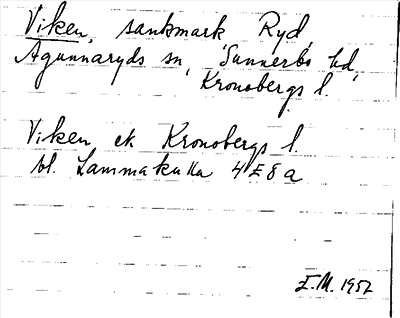 Viken, sankmark, Ryd,
Agunnaryds sn, Sunnerbo hd,
Kronobergs l.
Viken ek Kronobergs l.
bl. Lammakulla 4E8a
E.M. 1957